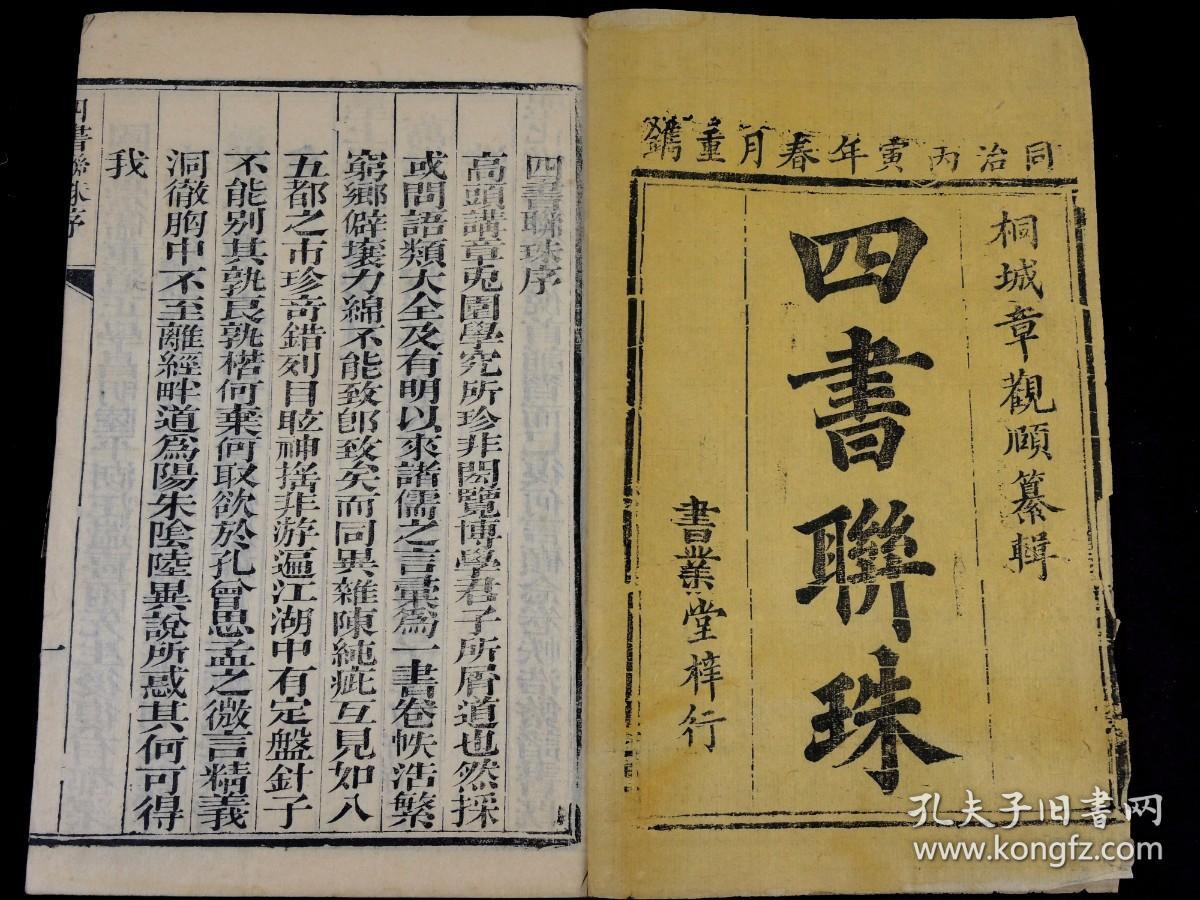 同治丙寅年春月重鐫
桐城章觀頎纂輯
四書聯珠
書業堂梓行
四書聯珠序
高頭講章兎園學究所珍非閎覽博學君子所屑道也然採
或問語類大全及有明以來諸儒之言彙爲一書卷帙浩繁
窮鄉僻壤力綿不能致卽致矣而同異雜陳純疵互見如入
五都之市珍竒錯列目眩神揺非游遍江湖中有定盤針子
不能别其孰良孰楛何棄何取欲於孔曾思孟之微言精義
洞徹胸中不至離經畔道爲陽朱陰陸異說所惑其何可得
我
四書聯珠序
一
孔夫子旧书网
www.kongfz.com